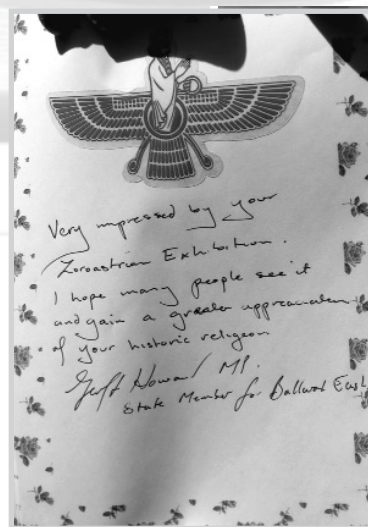 Very impressed by your
Zoroastrian Exhibition.
I hope many people see it
and gain a greater appreciation
of your historic religion
Geoff Howard MP.
State Member for Ballarat East